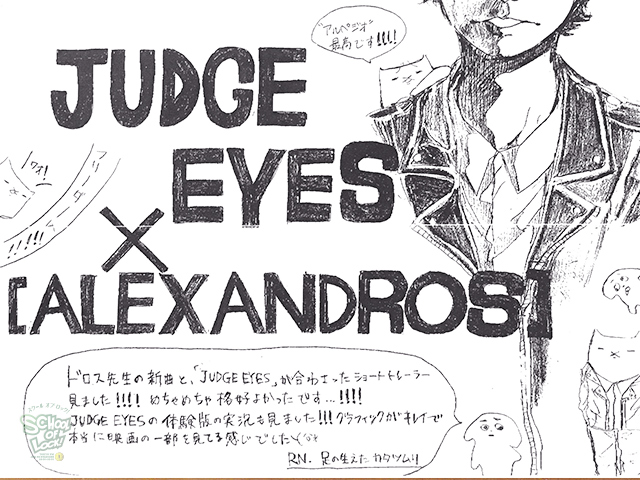 "アルペジオ"
最高です!!!!
JUDGE
EYES
×
[ALEXANDROS]
ワォ!
フリーダーダ!!!!!
ドロス先生の新曲と、「JUDGE EYES」が合わさったショートトレーラー
見ました!!!! めちゃめちゃ格好よかったです…!!!!
JUDGE EYESの体験版の実況も見ました!!! グラフィックがキレイで
本当に映画の一部を見てる感じでした
RN. 足の生えたカタツムリ
SCHOOL
OF
LOCK!